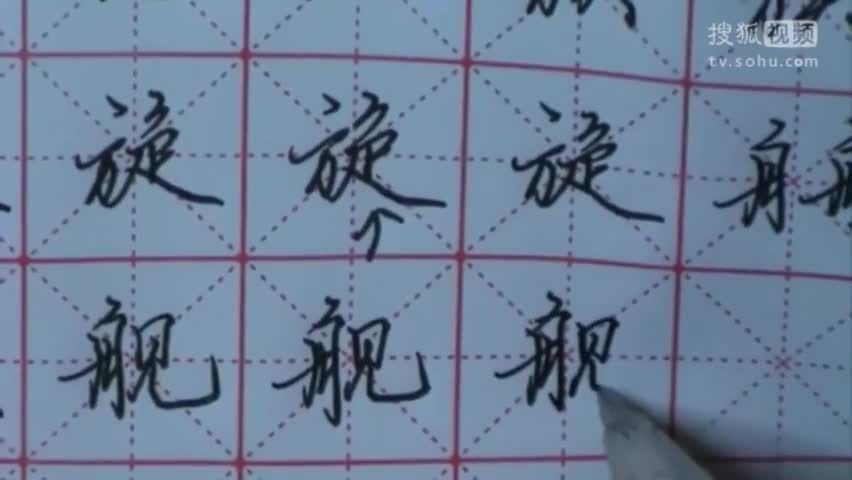 搜狐视频
tv.sohu.com
旋 旋 旋
舰 舰 舰